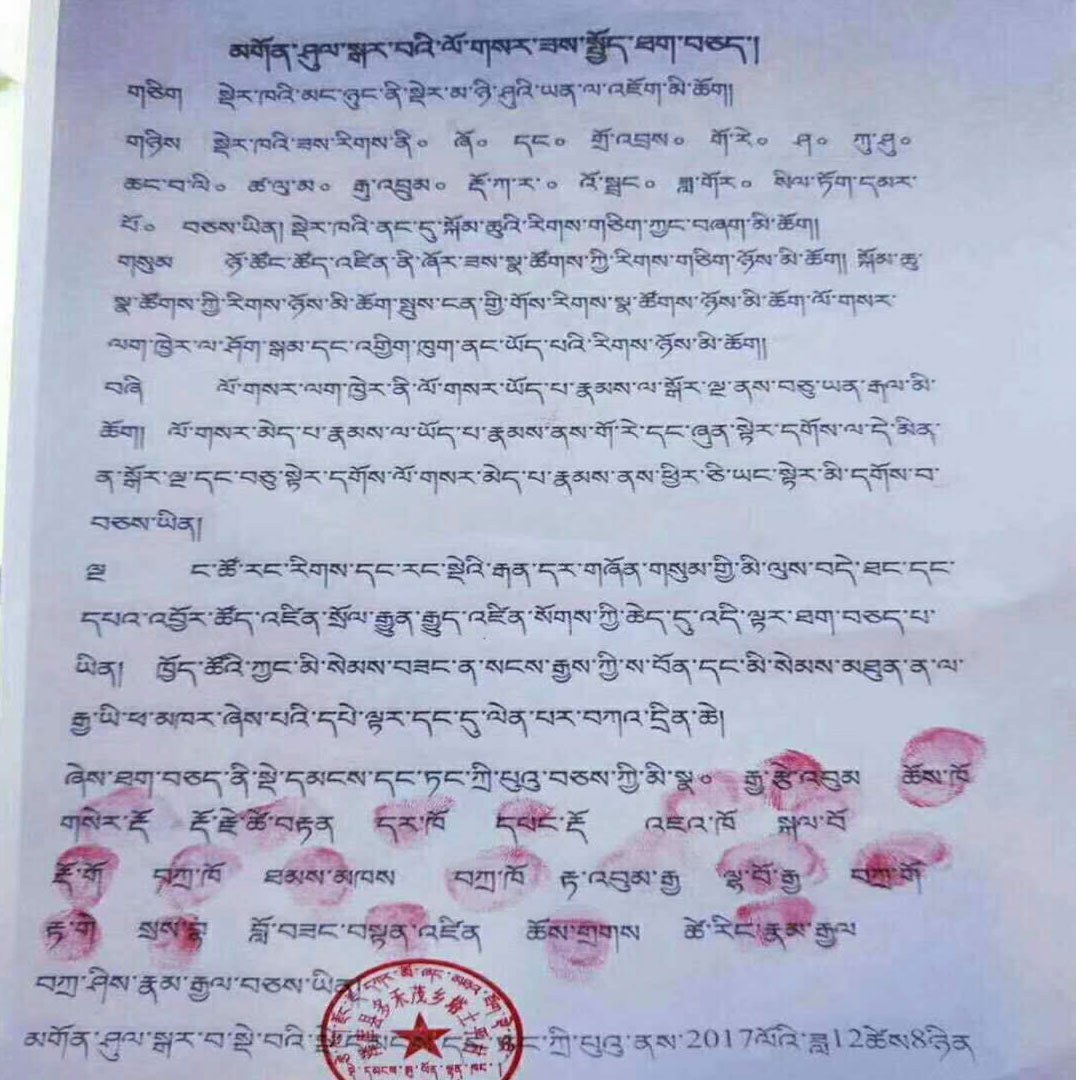 མགོན་ཤུལ་སྒར་བའི་ལོ་གསར་ཟས་སྤྱོད་ཐག་བཅད།
གཅིག སྡེར་ཁའི་མང་ཉུང་ནི་སྡེར་མ་ཉི་ཤུའི་ཡན་ལ་འཇོག་མི་ཆོག།
གཉིས སྡེར་ཁའི་ཟས་རིགས་ནི༠ ཞོ༠ དང༠ གྲོ་འབྲས༠ གོ་རེ༠ ཤ༠ ཀུ་ཤུ༠
ཆང་བ་ལི༠ ཚ་ལུ་མ༠ རྒུ་འབྲུམ༠ རྡོ་ཀ་ར་༠ འོ་སྦྲང༠ ཟླ་གོར༠ སིལ་ཏོག་དམར་
པོ༠ བཅས་ཡིན། སྡེར་ཁའི་ནང་དུ་སྐོམ་ཆུའི་རིགས་གཅིག་ཀྱང་བཞག་མི་ཆོག།
གསུམ ཉོ་ཚོང་ཚོད་འཛིན་ནི་ཞོར་ཟས་སྣ་ཚོགས་ཀྱི་རིགས་གཅིག་ཉོས་མི་ཆོག། སྐོམ་ཆུ་
སྣ་ཚོགས་ཀྱི་རིགས་ཉོས་མི་ཆོག་སྤུས་ངན་གྱི་གོས་རིགས་སྣ་ཚོགས་ཉོས་མི་ཆོག་ལོ་གསར་
ལག་ཁྱེར་ལ་ཤོག་སྒམ་དང་འགྱིག་ཁུག་ནང་ཡོད་པའི་རིགས་ཉོས་མི་ཆོག།
བཞི ལོ་གསར་ལག་ཁྱེར་ནི་ལོ་གསར་ཡོད་པ་རྣམས་ལ་སྒོར་ལྔ་ནས་བཅུ་ཡན་རྒལ་མི་
ཆོག། ལོ་གསར་མེད་པ་རྣམས་ལ་ཡོད་པ་རྣམས་ནས་གོ་རེ་དང་ཞུན་སྟེར་དགོས་ལ་དེ་མིན་
ན་སྒོར་ལྔ་དང་བཅུ་སྟེར་དགོས་ལོ་གསར་མེད་པ་རྣམས་ནས་ཕྱིར་ཅི་ཡང་སྟེར་མི་དགོས་བ་
བཅས་ཡིན།
ལྔ ང་ཚོ་རང་རིགས་དང་རང་སྡེའི་རྒན་དར་གཞོན་གསུམ་གྱི་མི་ལུས་བདེ་ཐང་དང་
དཔའ་འབྱོར་ཚོད་འཛིན་སྲོལ་རྒྱུན་རྒྱུད་འཛིན་སོགས་ཀྱི་ཆེད་དུ་འདི་ལྟར་ཐག་བཅད་པ་
ཡིན། ཁྱོད་ཚོའི་ཀྱང་མི་སེམས་བཟང་ན་སངས་རྒྱས་ཀྱི་ས་བོན་དང་མི་སེམས་མཐུན་ན་ལ་
རྒྱ་ཡི་ཕ་མཁར་ཞེས་པའི་དཔེ་ལྟར་དང་དུ་ལེན་པར་བཀའ་དྲིན་ཆེ།
ཞེས་ཐག་བཅད་ནི་སྡེ་དམངས་དང་ཏང་ཀྲི་པུའུ་བཅས་ཀྱི་མི་སྣ༠ རྒྱ་རྩེ་འབུམ ཆོས་ཁོ
གསེར་རྡོ རྡོ་རྗེ་ཚེ་བརྟན དར་ཁོ དཔང་རྡོ འཇའ་ཁོ སྐལ་པོ
རྡོ་གོ བཀྲ་ཁོ ཐམས་མཁས བཀྲ་ཁོ རྟ་འབུམ་རྒྱ ལྷ་པོ་རྒྱ བཀྲ་གོ
རྟ་གེ སྲས་ བློ་བཟང་བསྟན་འཛིན ཆོས་གྲགས ཚེ་རིང་རྣམ་རྒྱལ
བཀྲ་ཤིས་རྣམ་རྒྱལ་བཅས་ཡིན
多禾茂乡塔土
མགོན་ཤུལ་སྒར་བ་སྡེ་བའི་ ཀྲི་པུའུ་ནས་2017ལོའི་ཟླ12ཚེས8ཉིན